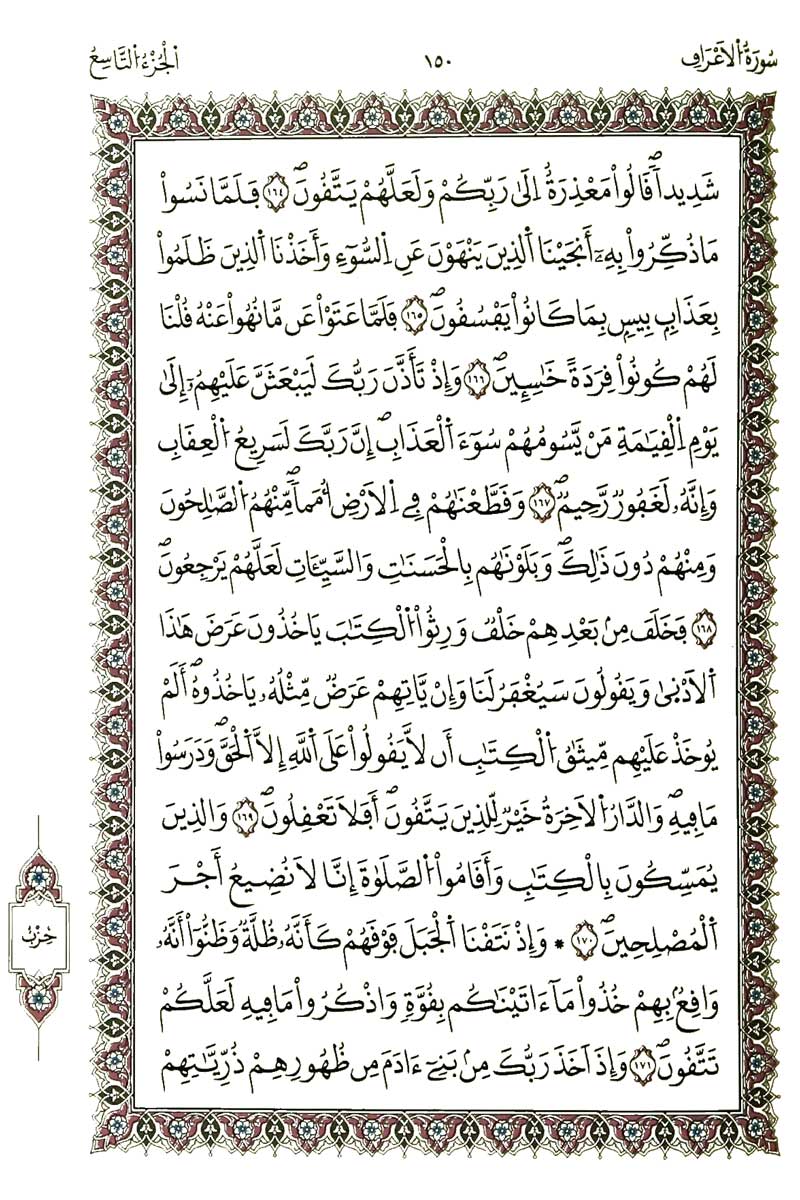 سُورَةُ الْاَعْرَافِ
١٥٠
الْجُزْءُ التَّاسِعُ
شَدِيداٗۖ قَالُواْ مَعْذِرَةٌ اِلَىٰ رَبِّكُمْ وَلَعَلَّهُمْ يَتَّقُونَۖ ١٦٤ فَلَمَّا نَسُواْ
مَا ذُكِّرُواْ بِهِۦٓ أَنجَيْنَا اَ۬لذِينَ يَنْهَوْنَ عَنِ اِ۬لسُّوٓءِ وَأَخَذْنَا اَ۬لذِينَ ظَلَمُواْ
بِعَذَابِۢ بِيسِۢ بِمَا كَانُواْ يَفْسُقُونَۖ ١٦٥ فَلَمَّا عَتَوْاْ عَن مَّا نُهُواْ عَنْهُ قُلْنَا
لَهُمْ كُونُواْ قِرَدَةً خَٰسِـِٕينَۖ ١٦٦ وَإِذْ تَأَذَّنَ رَبُّكَ لَيَبْعَثَنَّ عَلَيْهِمُۥٓ إِلَىٰ
يَوْمِ اِ۬لْقِيَٰمَةِ مَنْ يَّسُومُهُمْ سُوٓءَ اَ۬لْعَذَابِۖ إِنَّ رَبَّكَ لَسَرِيعُ اُ۬لْعِقَابِ
وَإِنَّهُۥ لَغَفُورٞ رَّحِيمٞۖ ١٦٧ وَقَطَّعْنَٰهُمْ فِے اِ۬لَارْضِ أُمَماٗۖ مِّنْهُمُ اُ۬لصَّٰلِحُونَ
وَمِنْهُمْ دُونَ ذَٰلِكَۖ وَبَلَوْنَٰهُم بِالْحَسَنَٰتِ وَالسَّيِّـَٔاتِ لَعَلَّهُمْ يَرْجِعُونَۖ
١٦٨ فَخَلَفَ مِنۢ بَعْدِهِمْ خَلْفٞ وَرِثُواْ اُ۬لْكِتَٰبَ يَاخُذُونَ عَرَضَ هَٰذَا
اَ۬لَادْن۪ىٰ وَيَقُولُونَ سَيُغْفَرُ لَنَا وَإِنْ يَّاتِهِمْ عَرَضٞ مِّثْلُهُۥ يَاخُذُوهُۖ أَلَمْ
يُوخَذْ عَلَيْهِم مِّيثَٰقُ اُ۬لْكِتَٰبِ أَن لَّا يَقُولُواْ عَلَى اَ۬للَّهِ إِلَّا اَ۬لْحَقَّۖ وَدَرَسُواْ
مَا فِيهِۖ وَالدَّارُ اُ۬لَاخِرَةُ خَيْرٞ لِّلذِينَ يَتَّقُونَۖ أَفَلَا تَعْقِلُونَۖ ١٦٩ وَالذِينَ
يُمَسِّكُونَ بِالْكِتَٰبِ وَأَقَامُواْ اُ۬لصَّلَوٰةَ إِنَّا لَا نُضِيعُ أَجْرَ
اَ۬لْمُصْلِحِينَۖ ١٧٠ * وَإِذْ نَتَقْنَا اَ۬لْجَبَلَ فَوْقَهُمْ كَأَنَّهُۥ ظُلَّةٞ وَظَنُّواْ أَنَّهُۥ
وَاقِعُۢ بِهِمْ خُذُواْ مَآ ءَاتَيْنَٰكُم بِقُوَّةٖ وَاذْكُرُواْ مَا فِيهِ لَعَلَّكُمْ
تَتَّقُونَۖ ١٧١ وَإِذَ اَخَذَ رَبُّكَ مِنۢ بَنِےٓ ءَادَمَ مِن ظُهُورِهِمْ ذُرِّيَّٰتِهِمْ
حِزْبُ